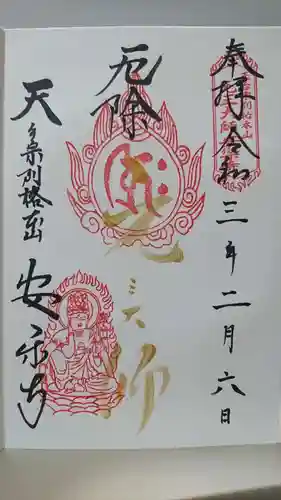 奉拝 令和三年二月六日
厄除
元三大師
天台宗別格本山 安楽寺